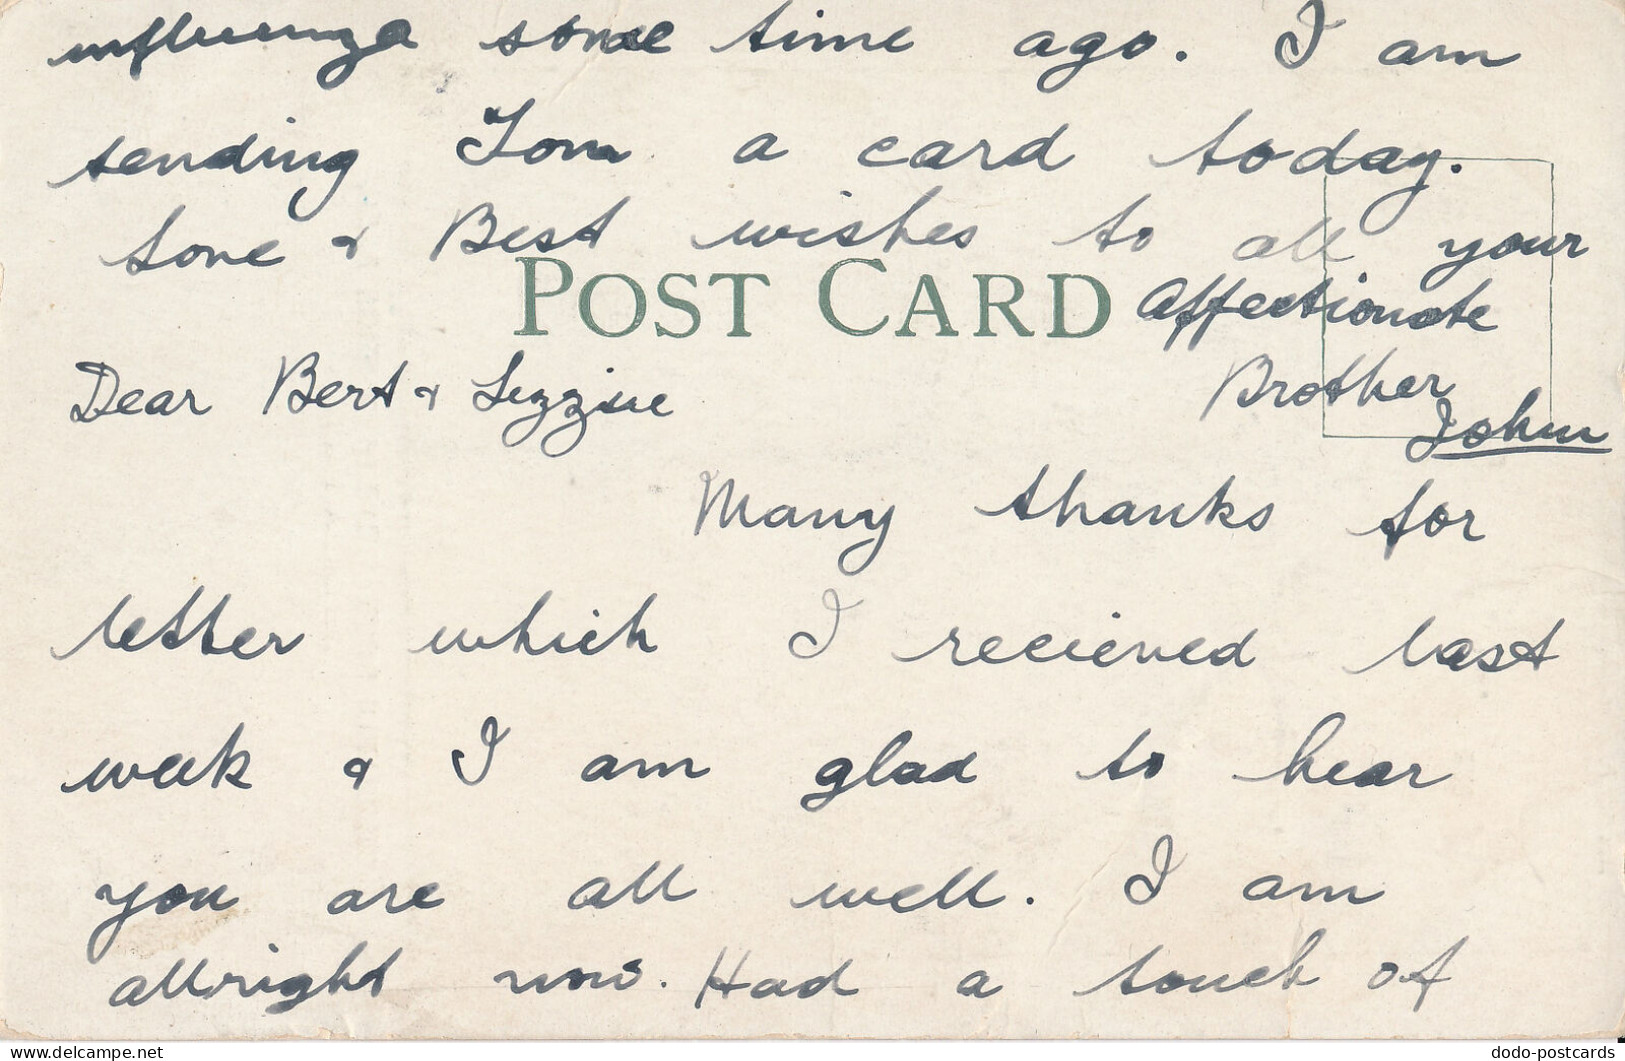 Dear Bert & Lizzie
Many thanks for
letter which I recieved last
week & I am glad to hear
you are all well. I am
allright now. Had a touch of
influenza some time ago. I am
sending Tom a card today.
Love & Best wishes to all your
Affectionate
Brother
John
POST CARD
dodo-postcards